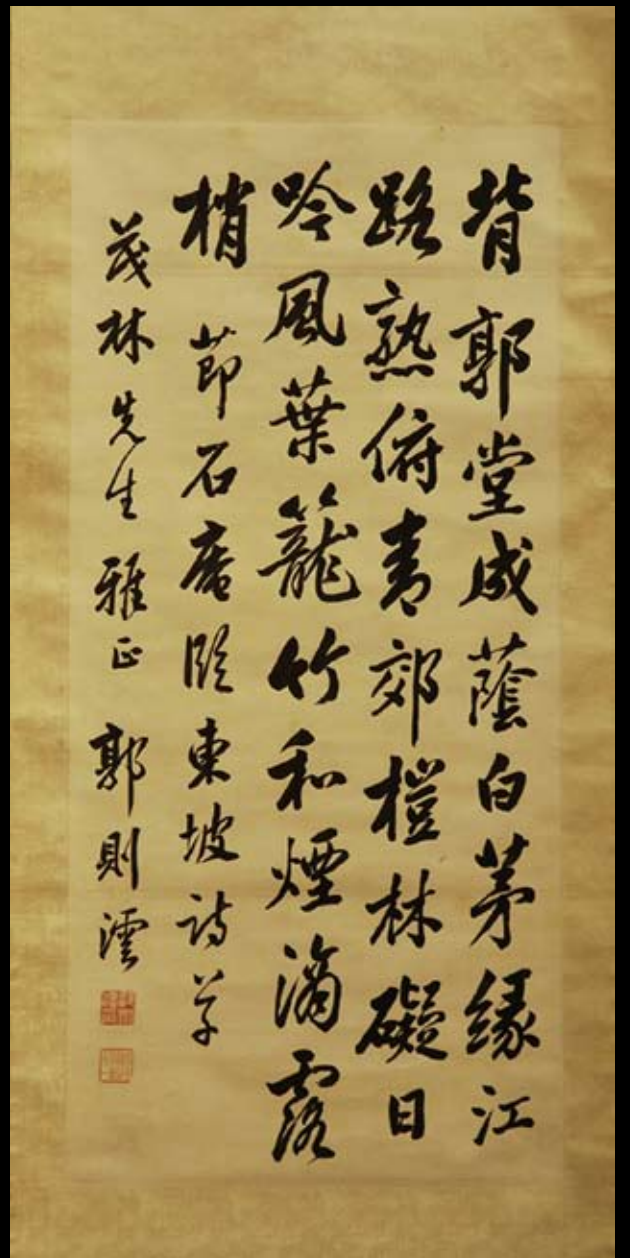 背郭堂成蔭白茅緣江
路熟俯青郊榿林礙日
吟風葉籠竹和煙滴露
梢 節石庵臨東坡詩草
茂林先生雅正 郭則澐